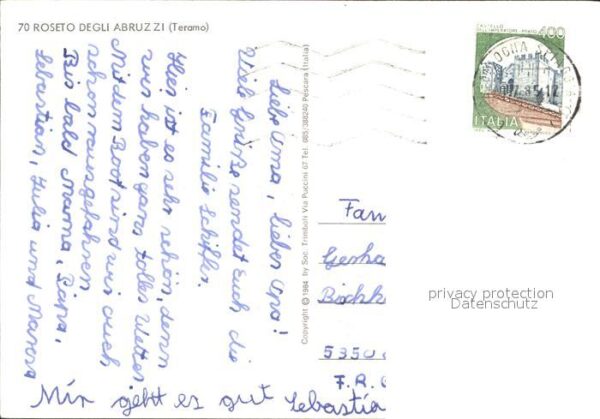 70 ROSETO DEGLI ABRUZZI (Teramo)
Liebe Oma, lieber Opa!
Viele Grüße sendet Euch die
Familie Schiffer.
Hier ist es sehr schön, denn
wir haben ganz tolles Wetter.
Mit dem Boot sind wir auch
schon rausgefahren.
Bis bald Mama, Papa,
Sebastian, Julia und
Mir geht es gut Sebastia
Copyright © 1984 by Soc. Trimboli Via Puccini 67 Tel. 085/388240 Pescara (Italia)
400
ITALIA
Fam
Gerha
5350
F.R.G
privacy protection
Datenschutz